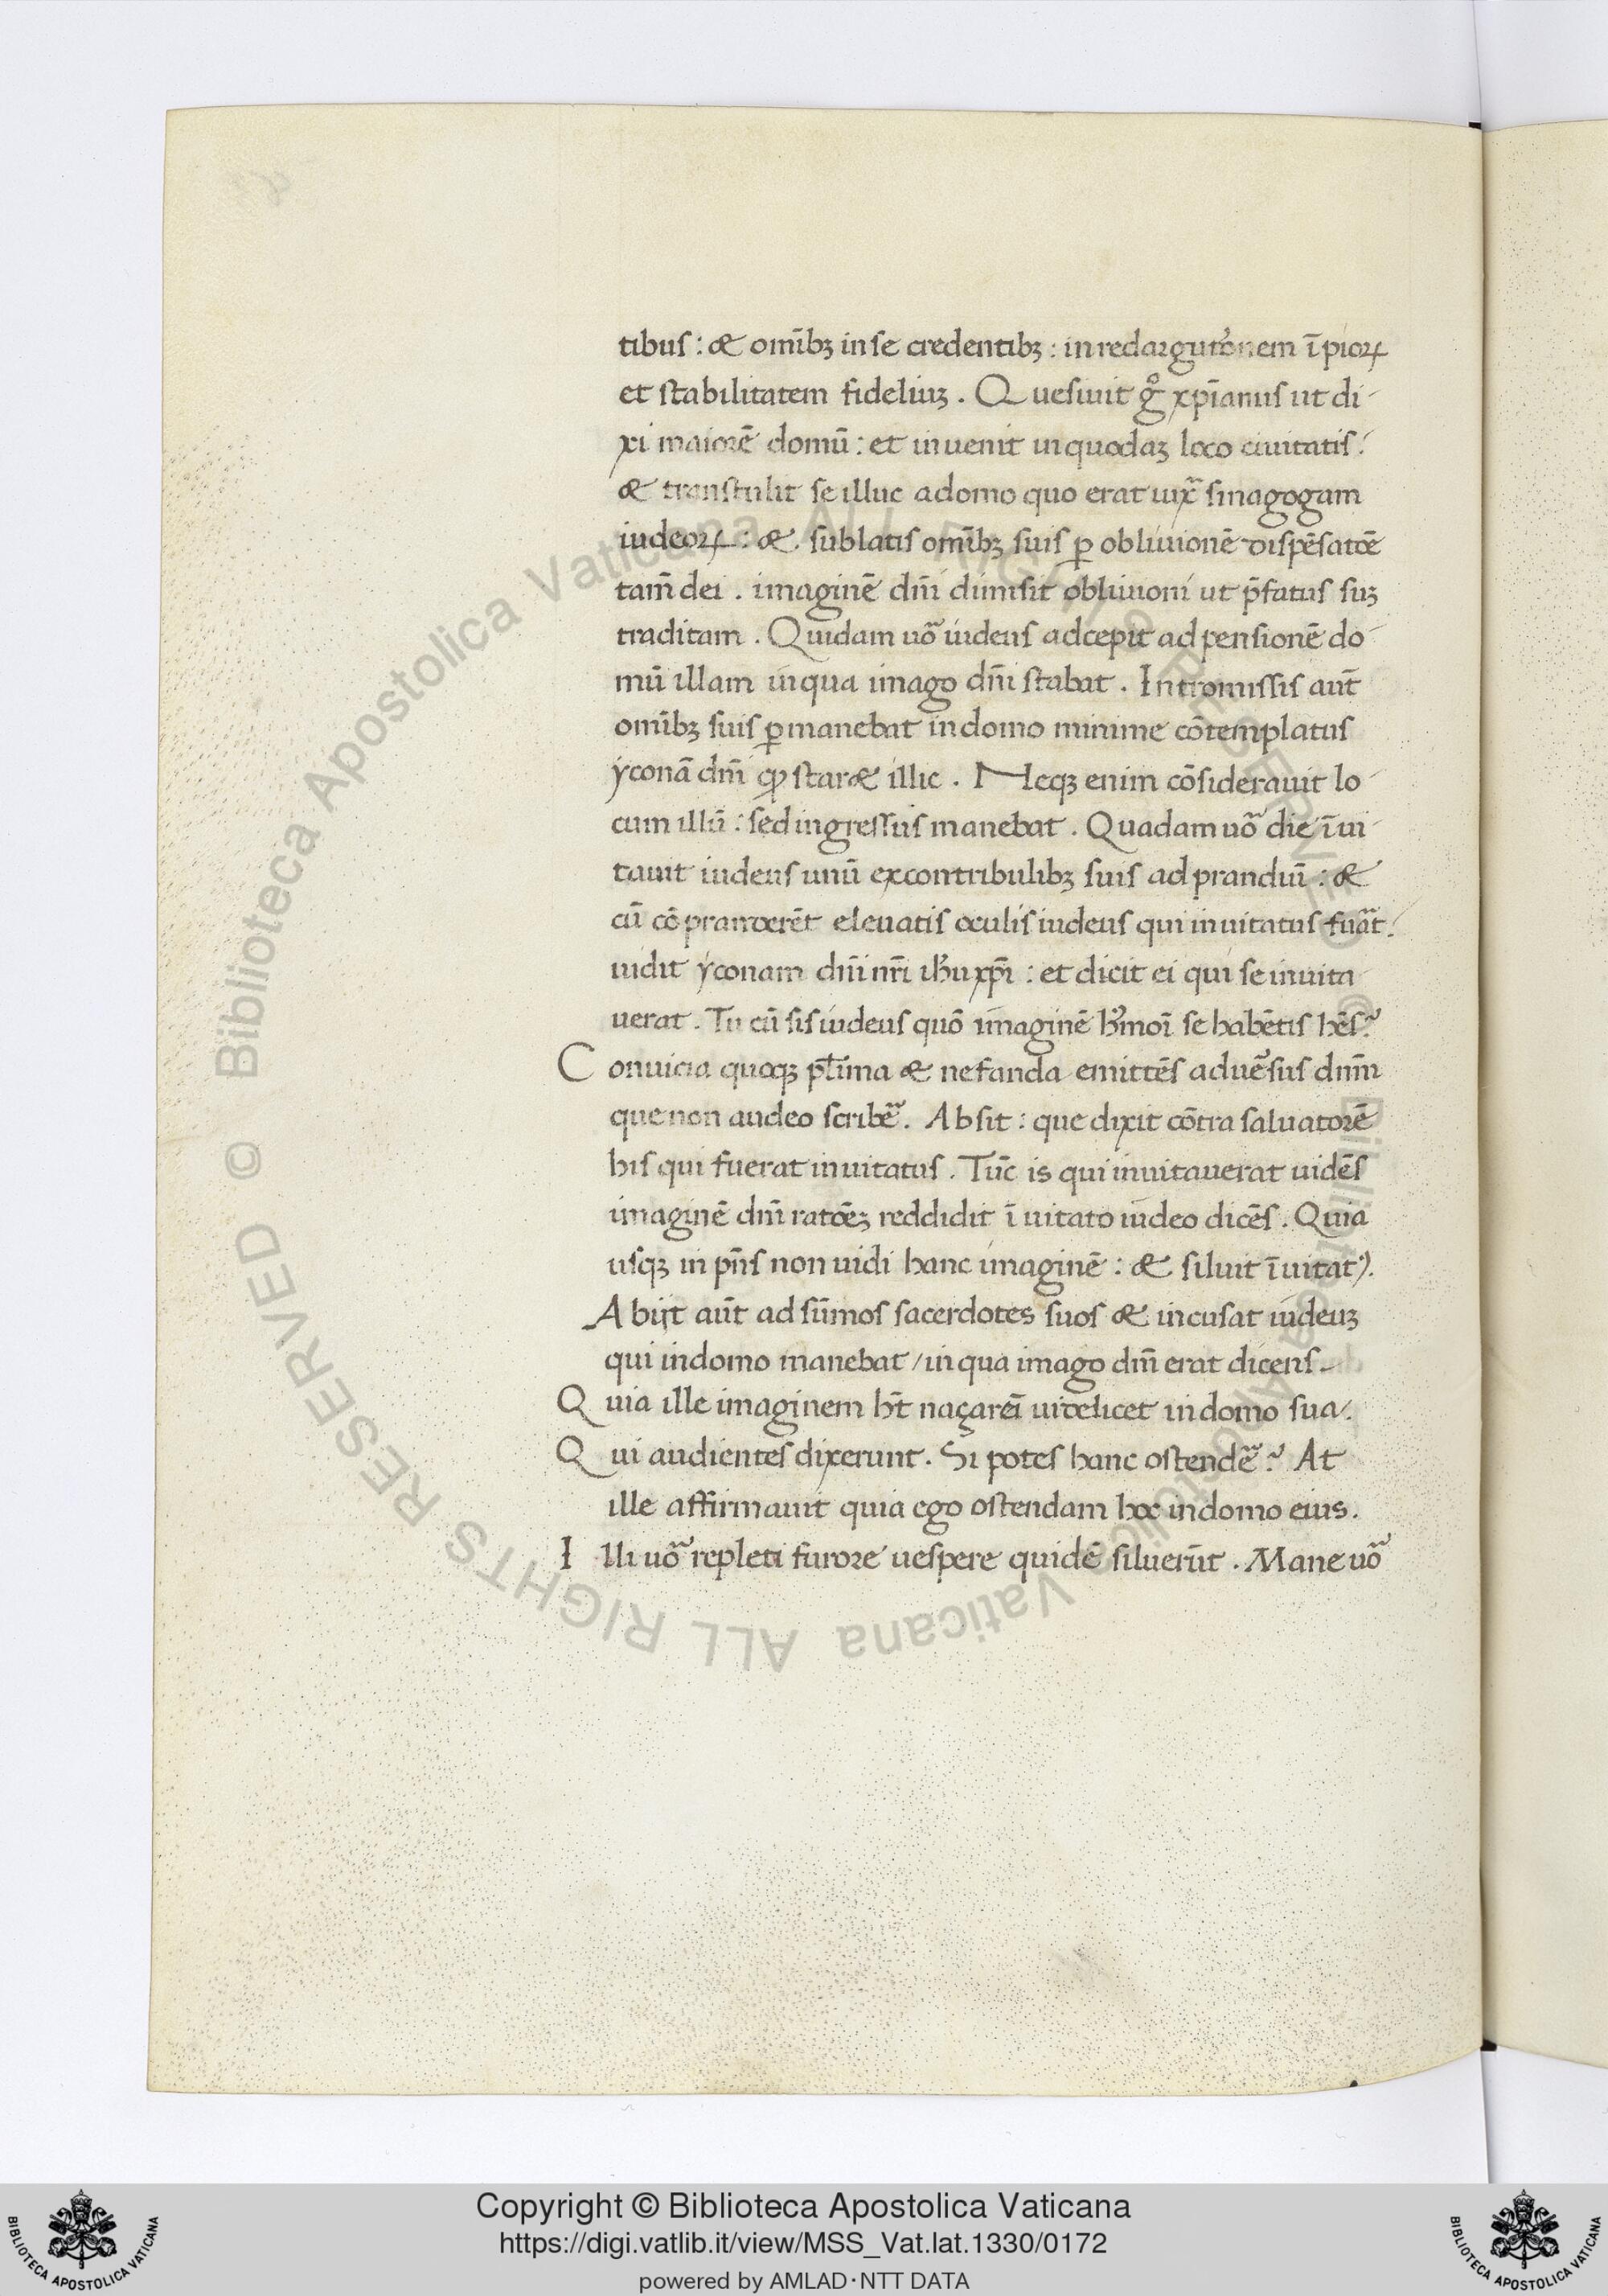 tibus : & om̄ibꝫ in se credentibꝫ : in redargutōnem īpioꝝ
et stabilitatem fideliuꝫ . Quesiuit gͦ xp̄ianus ut di-
xi maiorē domū : et inuenit in quodaꝫ loco ciuitatis :
& transtulit se illuc a domo quo erat iuxͣ sinagogam
iudeoꝝ : & sublatis om̄ibꝫ suis ꝑ obliuionē dispēsatōē
tam̄ dei . imaginē dn̄i dimisit obliuioni ut p̄fatus suꝫ
traditam . Quidam uõ iudeus adcepit ad pensionē do-
mū illam in qua imago dn̄i stabat . Intromissis aūt
om̄ibꝫ suis ꝑmanebat in domo minime cōtemplatus
ẏconā dn̄i ꝙ star& illic . Neqꝫ enim cōsiderauit lo-
cum illū : sed ingressus manebat . Quadam uõ die īui-
tauit iudeus unū ex contribulibꝫ suis ad pranduī : &
cū cōpranderēt eleuatis oculis iudeus qui inuitatus fuāt :
uidit ẏconam dn̄i nr̄i ih̄u xp̄i : et dicit ei qui se inuita-
uerat . Tu cū sis iudeus quō imaginē h̄moī se habētis hēs ?
Conuicia quoqꝫ pl̄ima & nefanda emittēs aduẽsus dnm̄
que non audeo scribẽ . Absit : que dixit cōtra saluatorē
his qui fuerat inuitatus . Tūc is qui inuitauerat uidēs
imaginē dn̄i ratōēꝫ reddidit īuitato iudeo dicēs . Quia
usqꝫ in pn̄s non uidi hanc imaginē : & siluit īuitatꝰ .
Abiit aūt ad sūmos sacerdotes suos & incusat iudeuꝫ
qui in domo manebat / in qua imago dn̄i erat dicens -
Quia ille imaginem h̄t naçareī uidelicet in domo sua .
Qui audientes dixerunt . Si potes hanc ostendẽ ? At
ille affirmauit quia ego ostendam hoc in domo eius .
Illi uõ repleti furore uespere quidē siluerūt . Mane uõ
Biblioteca Apostolica Vaticana ALL RIGHTS RESERVED ©
Copyright © Biblioteca Apostolica Vaticana
https://digi.vatlib.it/view/MSS_Vat.lat.1330/0172
powered by AMLAD·NTT DATA
BIBLIOTECA APOSTOLICA VATICANA
BIBLIOTECA APOSTOLICA VATICANA